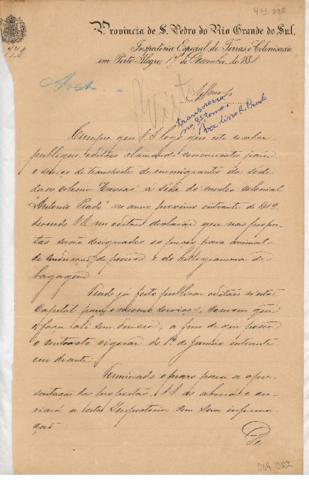 Provincia de S. Pedro do Rio Grande do Sul.
Inspectoria Especial de Terras e Colonisação
em Porto Alegre 1º de Dezembro de 188
Cumpre que V. S. logo que esta receba
publique editaes chamando concurrentes para
o serviço de transporte de immigrantes da séde
da colonia Caxias á séde do nucleo colonial
Antonio Prado no anno proximo entrante de
devendo V. S. no edital declarar que nas propos
tas serão designados os preços para animal
de conducção de pessôa e de kilogramma de
bagagem.
Tendo já feito publicar editaes n'esta
Capital para o mesmo serviço, convem que
V. S. faça ahi com urgencia, a fim de que possa
o contracto vigorar de 1º de Janeiro entrante
em diante.
Terminado o prazo para a apre
sentação das propostas, V. S. as abrirá e en
viará a esta Inspectoria com sua informa
ção.